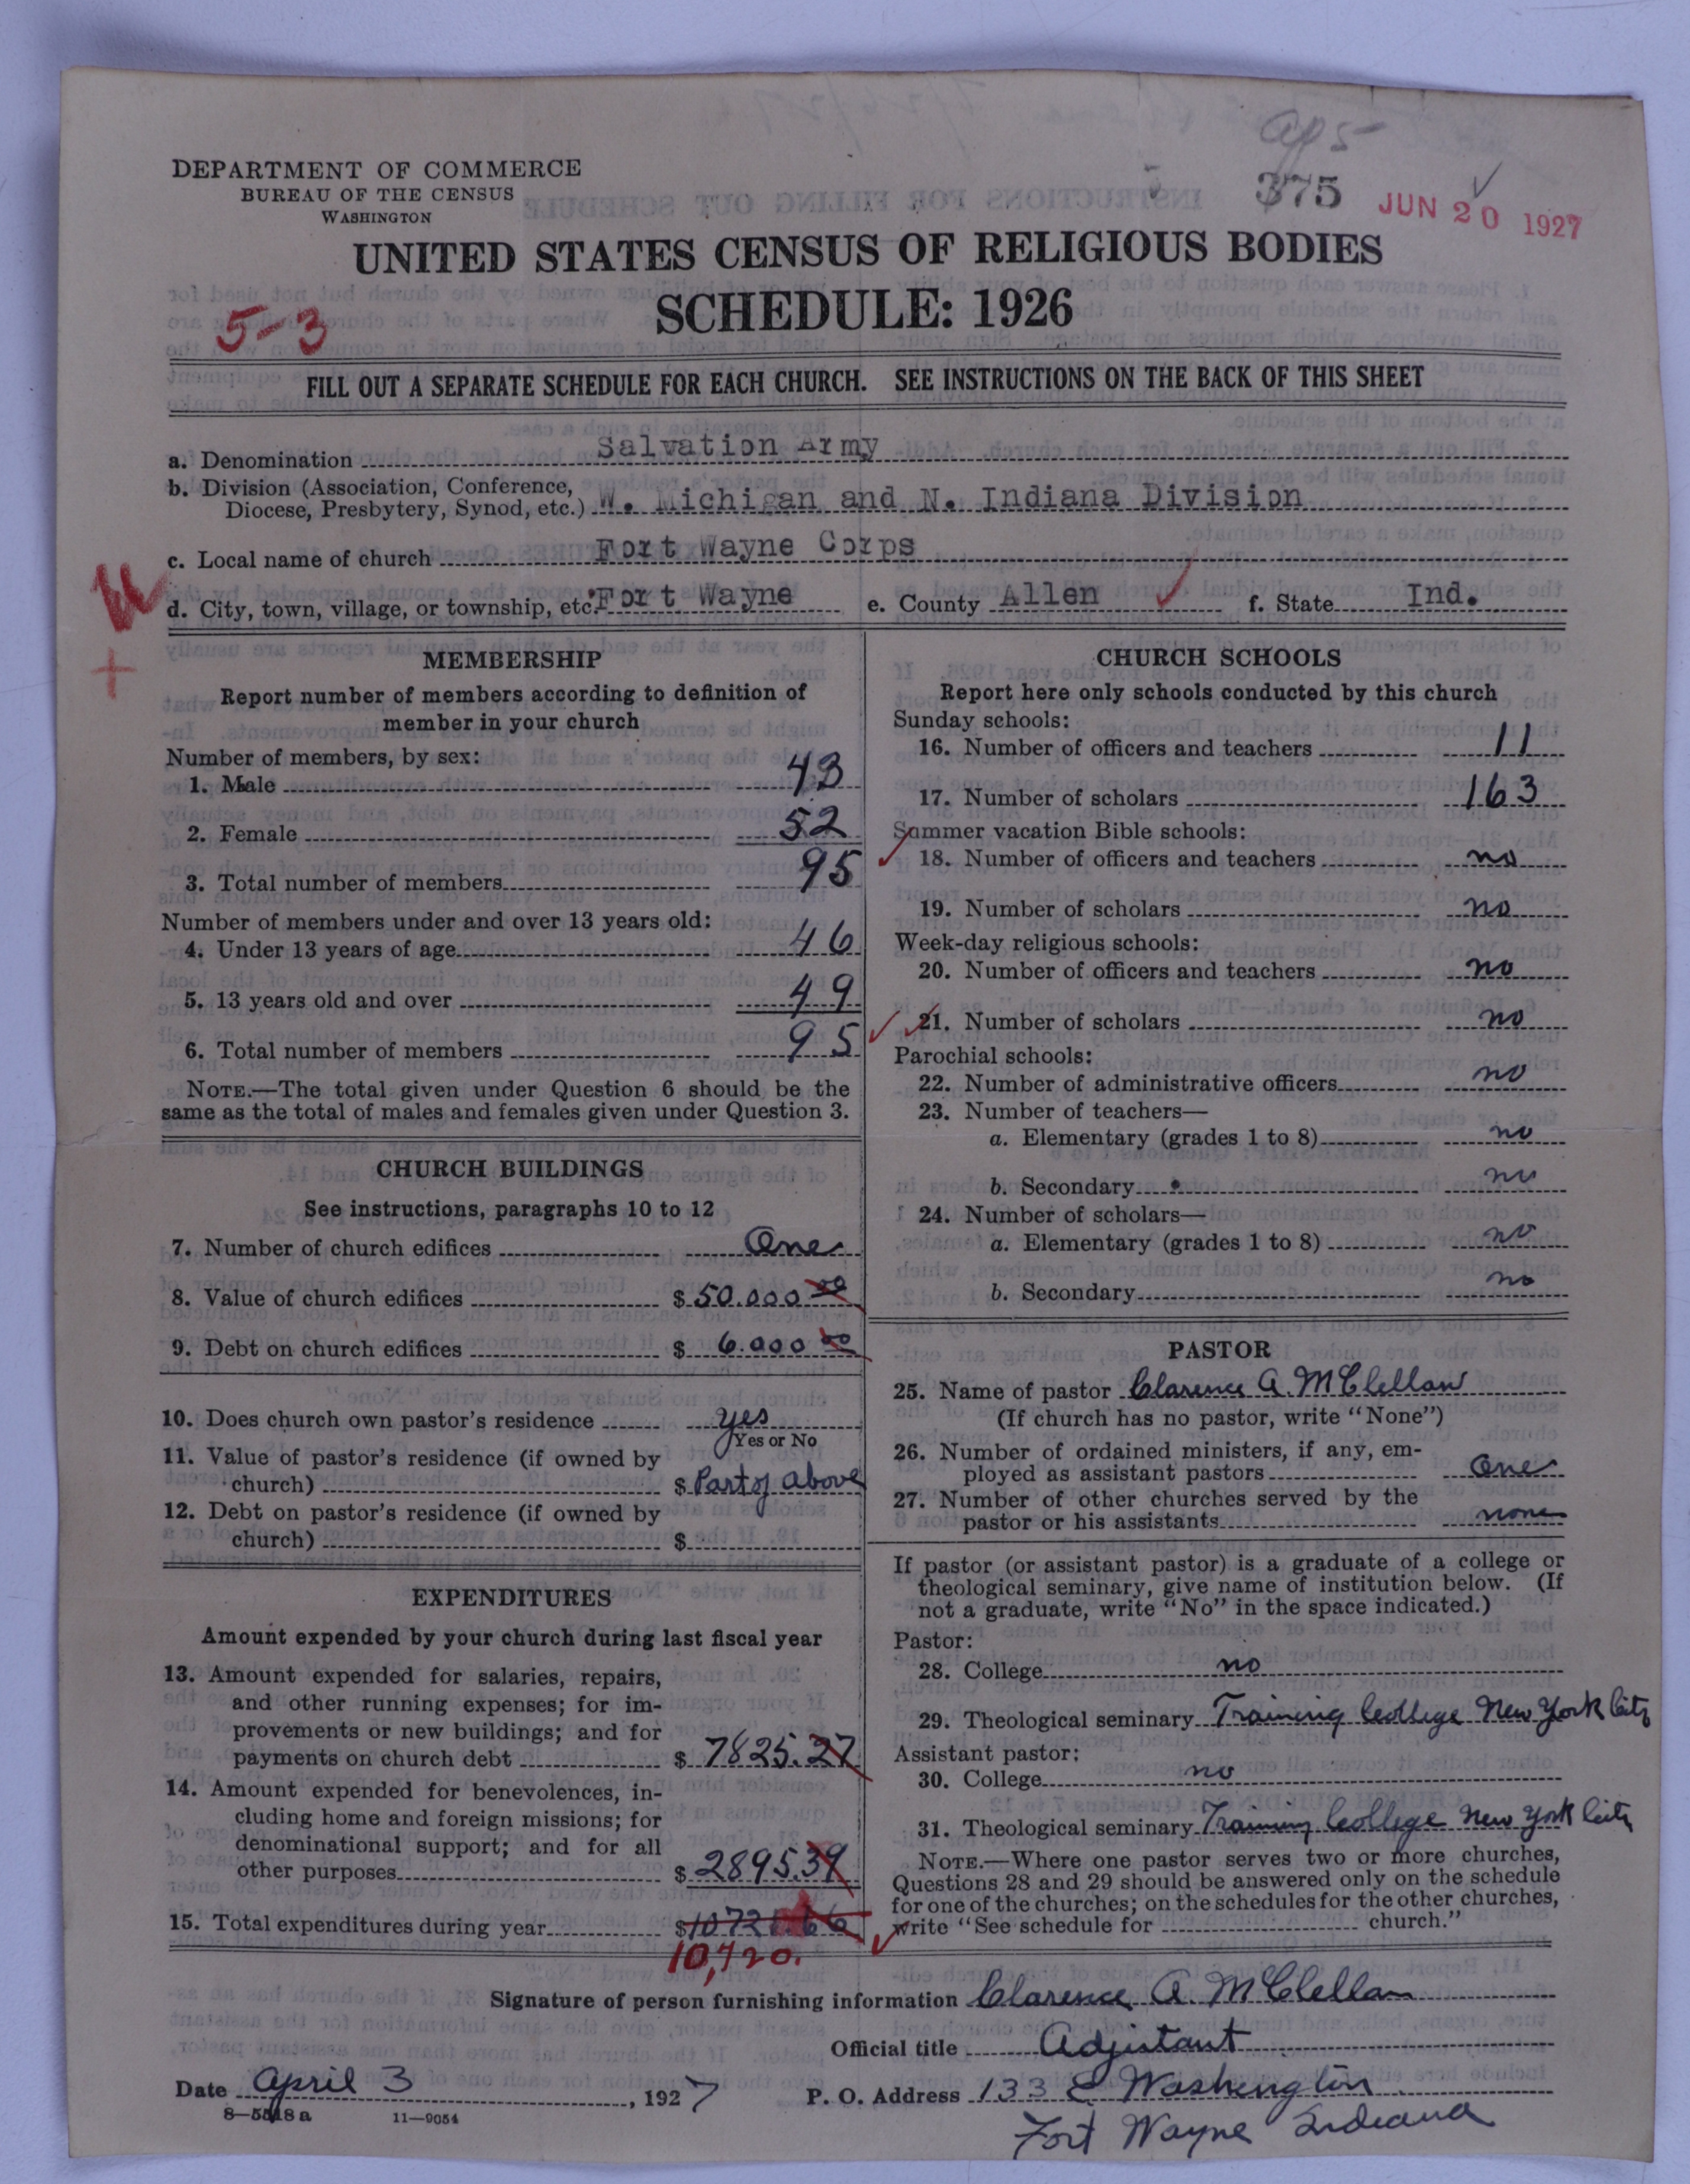 375 JUN 20 1927
DEPARTMENT OF COMMERCE
BUREAU OF THE CENSUS
WASHINGTON
UNITED STATES CENSUS OF RELIGIOUS BODIES
SCHEDULE: 1926
5-3
FILL OUT A SEPARATE SCHEDULE FOR EACH CHURCH. SEE INSTRUCTIONS ON THE BACK OF THIS SHEET
a. Denomination Salvation Army
b. Division (Association, Conference,
Diocese, Presbytery, Synod, etc.) W. Michigan and N. Indiana Division
c. Local name of church Fort Wayne Corps
d. City, town, village, or township, etc. Fort Wayne e. County Allen f. State Ind.
MEMBERSHIP
Report number of members according to definition of
member in your church
Number of members, by sex:
1. Male 43
2. Female 52
3. Total number of members 95
Number of members under and over 13 years old:
4. Under 13 years of age 46
5. 13 years old and over 49
6. Total number of members 95
NOTE.—The total given under Question 6 should be the
same as the total of males and females given under Question 3.
CHURCH BUILDINGS
See instructions, paragraphs 10 to 12
7. Number of church edifices One
8. Value of church edifices $ 50.000 00
9. Debt on church edifices $ 6.000 00
10. Does church own pastor's residence yes
Yes or No
11. Value of pastor's residence (if owned by
church) $ Part of above
12. Debt on pastor's residence (if owned by
church) $
EXPENDITURES
Amount expended by your church during last fiscal year
13. Amount expended for salaries, repairs,
and other running expenses; for im-
provements or new buildings; and for
payments on church debt $ 7825.27
14. Amount expended for benevolences, in-
cluding home and foreign missions; for
denominational support; and for all
other purposes $ 2895.39
15. Total expenditures during year $ 10721.66
10,720.
CHURCH SCHOOLS
Report here only schools conducted by this church
Sunday schools:
16. Number of officers and teachers 11
17. Number of scholars 163
Summer vacation Bible schools:
18. Number of officers and teachers no
19. Number of scholars no
Week-day religious schools:
20. Number of officers and teachers no
21. Number of scholars no
Parochial schools:
22. Number of administrative officers no
23. Number of teachers—
a. Elementary (grades 1 to 8) no
b. Secondary no
24. Number of scholars—
a. Elementary (grades 1 to 8) no
b. Secondary no
PASTOR
25. Name of pastor Clarence A McClellan
(If church has no pastor, write "None")
26. Number of ordained ministers, if any, em-
ployed as assistant pastors One
27. Number of other churches served by the
pastor or his assistants none
If pastor (or assistant pastor) is a graduate of a college or
theological seminary, give name of institution below. (If
not a graduate, write "No" in the space indicated.)
Pastor:
28. College no
29. Theological seminary Training College New York City
Assistant pastor:
30. College no
31. Theological seminary Training College New York City
NOTE.—Where one pastor serves two or more churches,
Questions 28 and 29 should be answered only on the schedule
for one of the churches; on the schedules for the other churches,
write "See schedule for church."
Signature of person furnishing information Clarence A. McClellan
Official title Adjutant
Date April 3, 1927 P. O. Address 133 E Washington
Fort Wayne Indiana
8—5518a 11—9054